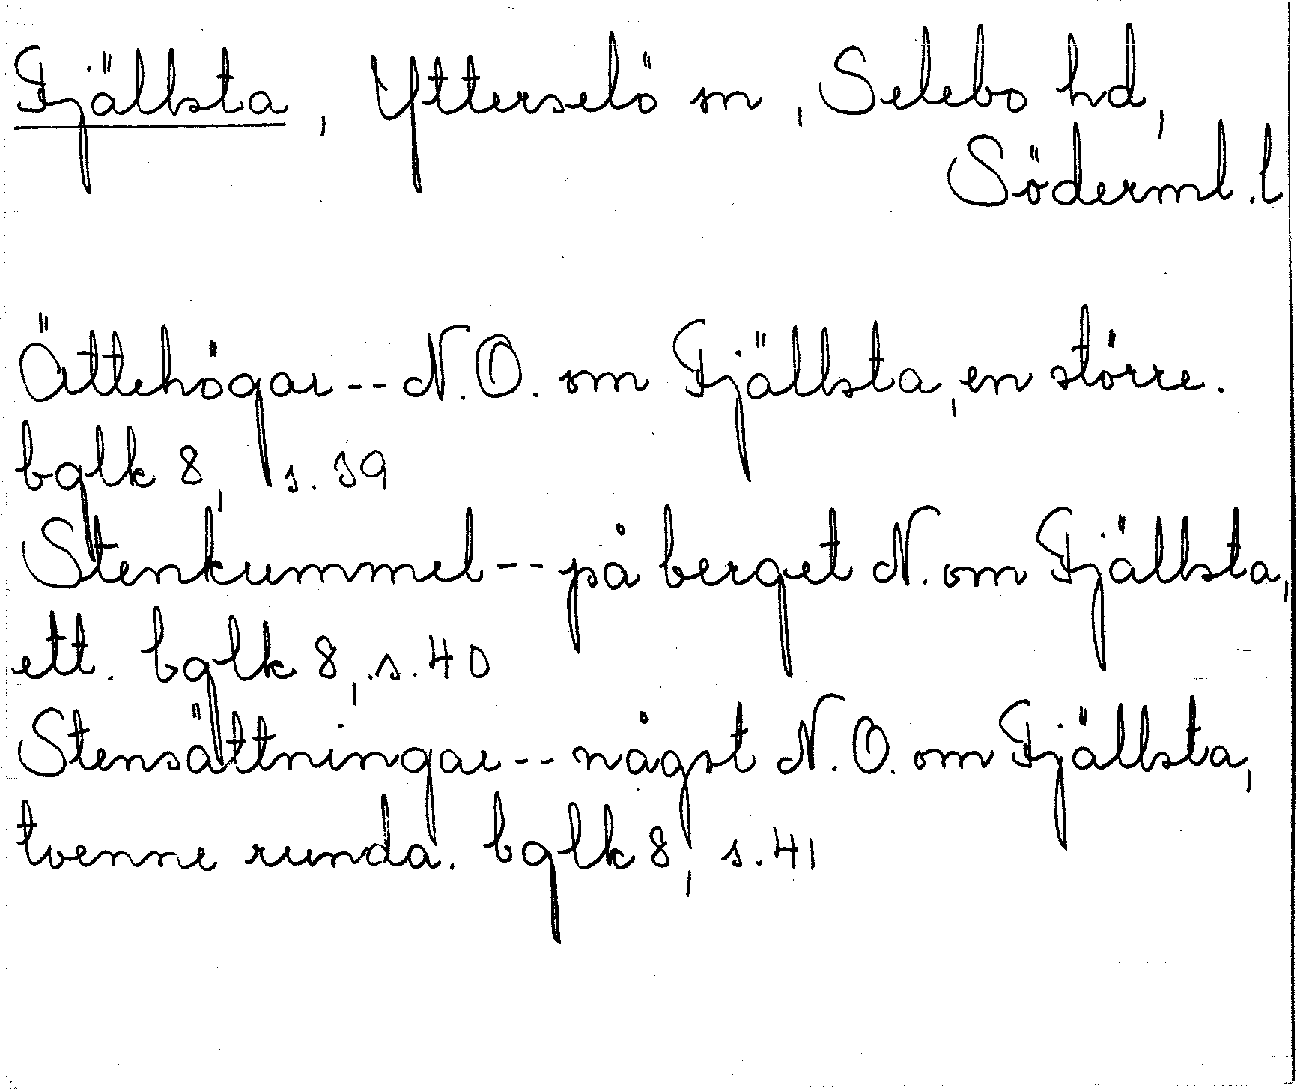 Fjällsta, Ytterselö sn, Selebo hd,
Söderml. l
Ättehögar -- N.O. om Fjällsta, en större.
bglk 8, s. 39
Stenkummel -- på berget N. om Fjällsta,
ett. bglk 8, s. 40
Stensättningar -- någst N.O. om Fjällsta,
tvenne runda. bglk 8, s. 41